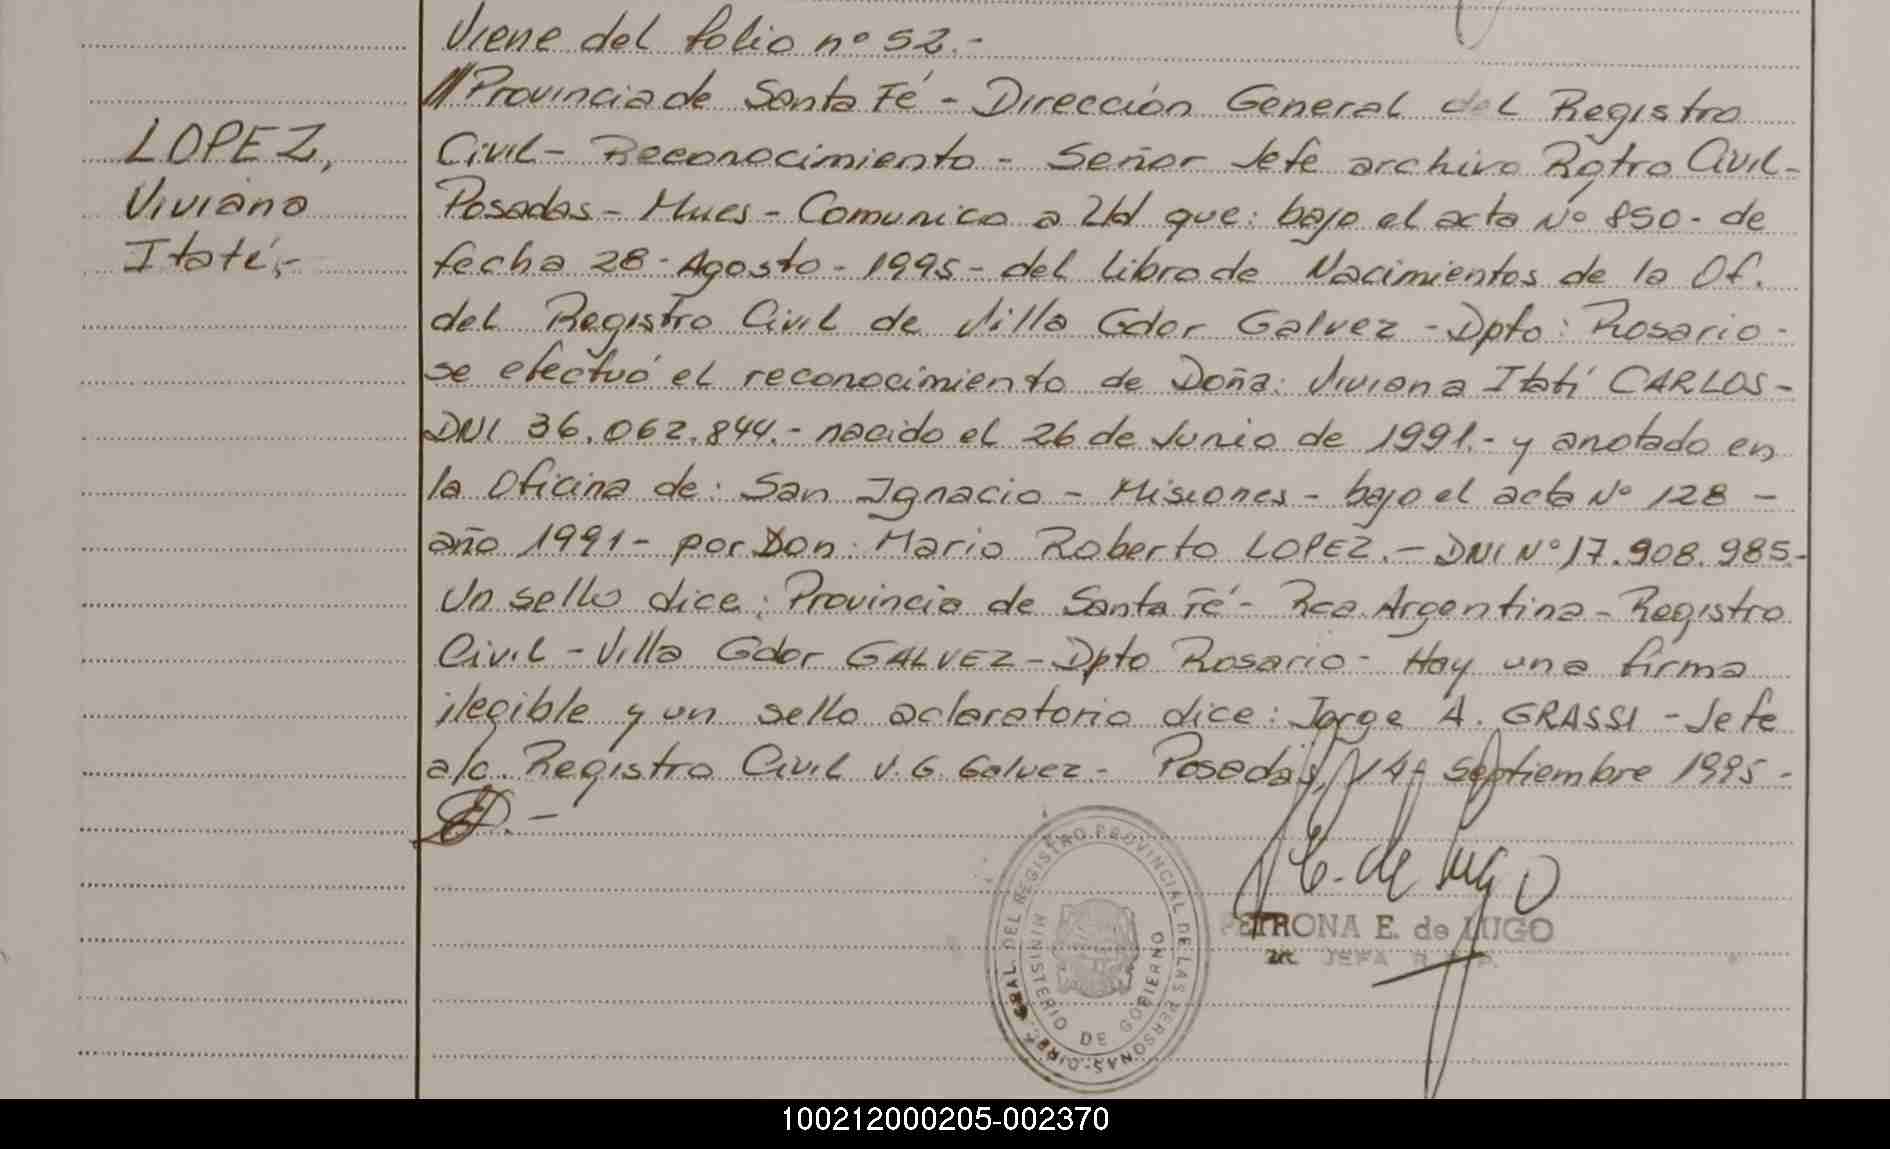 Viene del folio nº 52.-
///Provincia de Santa Fé - Dirección General del Registro
LOPEZ,
Civil - Reconocimiento - Señor Jefe archivo Rgtro Civil -
Viviana
Posadas - Mnes - Comunico a Ud que: bajo el acta Nº 850 - de
Itatí.-
fecha 28 - Agosto - 1995 - del libro de Nacimientos de la Of.
del Registro Civil de Villa Gdor Galvez - Dpto: Rosario -
se efectuó el reconocimiento de Doña: Viviana Itatí CARLOS -
DNI 36.062.844.- nacido el 26 de Junio de 1991.- y anotado en
la Oficina de: San Ignacio - Misiones - bajo el acta Nº 128 -
año 1991 - por Don Mario Roberto LOPEZ.- DNI Nº 17.908.985.-
Un sello dice: Provincia de Santa Fé - Rca Argentina - Registro
Civil - Villa Gdor GALVEZ - Dpto Rosario - Hay una firma
ilegible y un sello aclaratorio dice: Jorge A. GRASSI - Jefe
a/c. Registro Civil V. G. Galvez - Posadas, 14 - Septiembre 1995 -
E. de Lugo
PETRONA E. de LUGO
JEFA
DIREC. GRAL. DEL REGISTRO PROVINCIAL DE LAS PERSONAS
MINISTERIO DE GOBIERNO
100212000205-002370